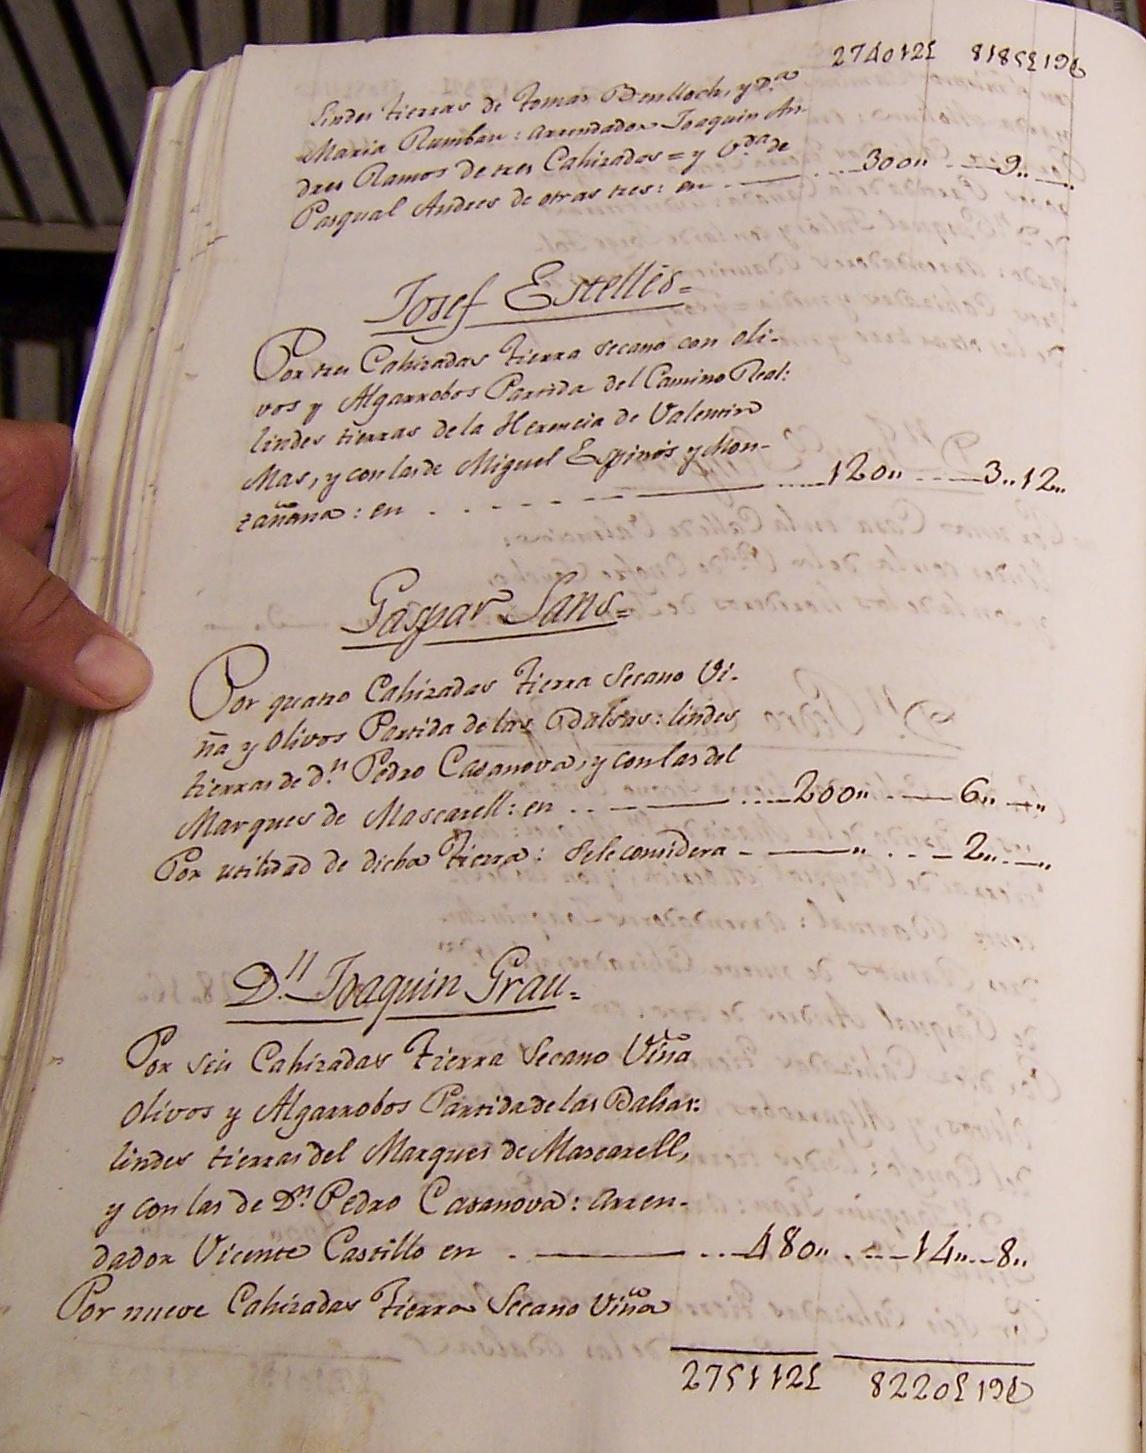 274012£ 81853196
lindes tierras de Tomas Benlloch, y D.ª
Maria Rumbau: arrendador Joaquin An-
dres Ramos de tres Cahizadas = y V.da de
Pasqual Andres de otras tres: en 300,, 9,,
Josef Estellés =
Por tres Cahizadas tierra secano con oli-
vos y Algarrobos Partida del Camino Real:
lindes tierras de la Herencia de Valentin
Mas, y con las de Miguel Espinós y Mon-
tañana: en 120,, 3,,12,,
Gaspar Sans =
Por quatro Cahizadas tierra Secano Vi-
ña y Olivos Partida de las Balsas: lindes
tierras de d.n Pedro Casanova, y con las del
Marques de Mascarell: en 200,, 6,,
Por utilidad de dicha tierra: sele considera 2,,
D.n Joaquin Grau =
Por seis Cahizadas tierra Secano Viña
Olivos y Algarrobos Partida de las Balsas:
lindes tierras del Marques de Mascarell,
y con las de D.n Pedro Casanova: arren-
dador Vicente Castillo en 480,, 14,,8,,
Por nueve Cahizadas tierra Secano Viña